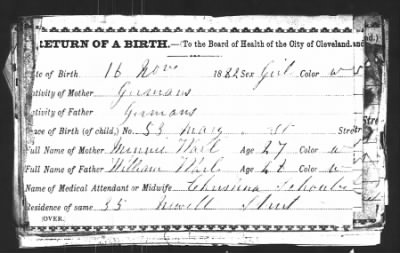 RETURN OF A BIRTH.—(To the Board of Health of the City of Cleveland, and
te of Birth 16 Nov 1882 Sex Girl Color w
tivity of Mother Germans
tivity of Father Germans
ace of Birth (of child,) No. 53 Mary St Street
Full Name of Mother Minnie Age 27 Color w
Full Name of Father William Age 28 Color w
Name of Medical Attendant or Midwife Christina
Residence of same 35 Newell Street
OVER.